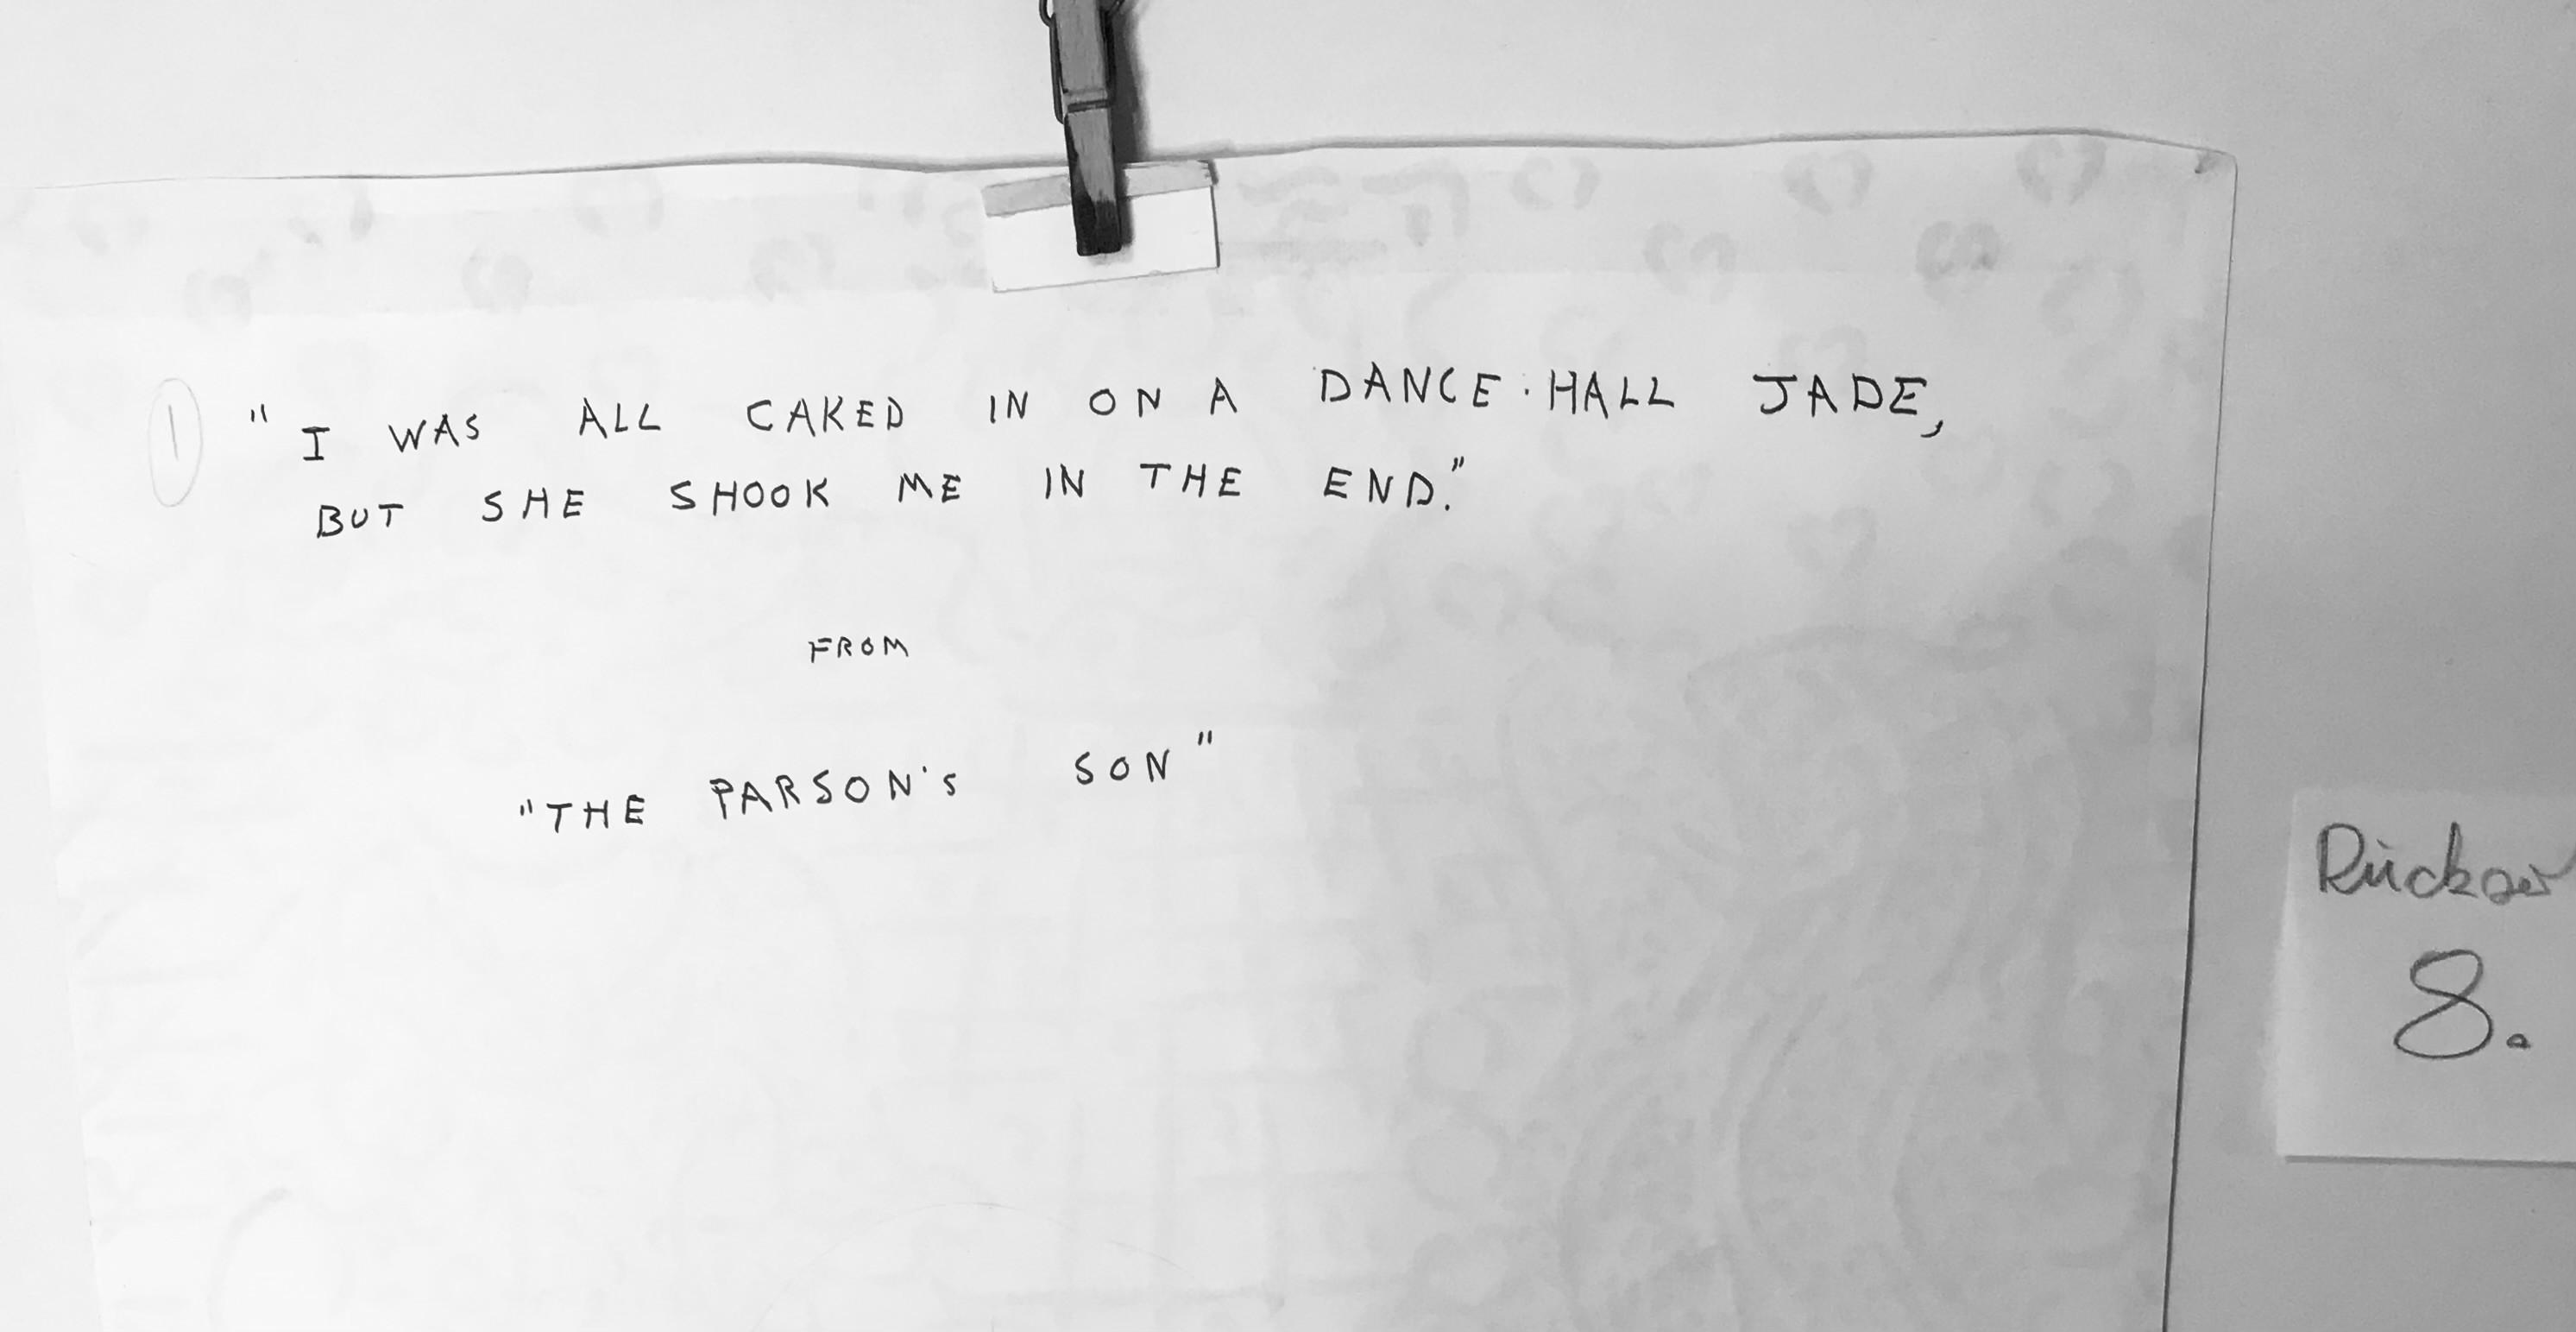 1 " I WAS ALL CAKED IN ON A DANCE·HALL JADE,
BUT SHE SHOOK ME IN THE END."
FROM
"THE PARSON'S SON"
8.